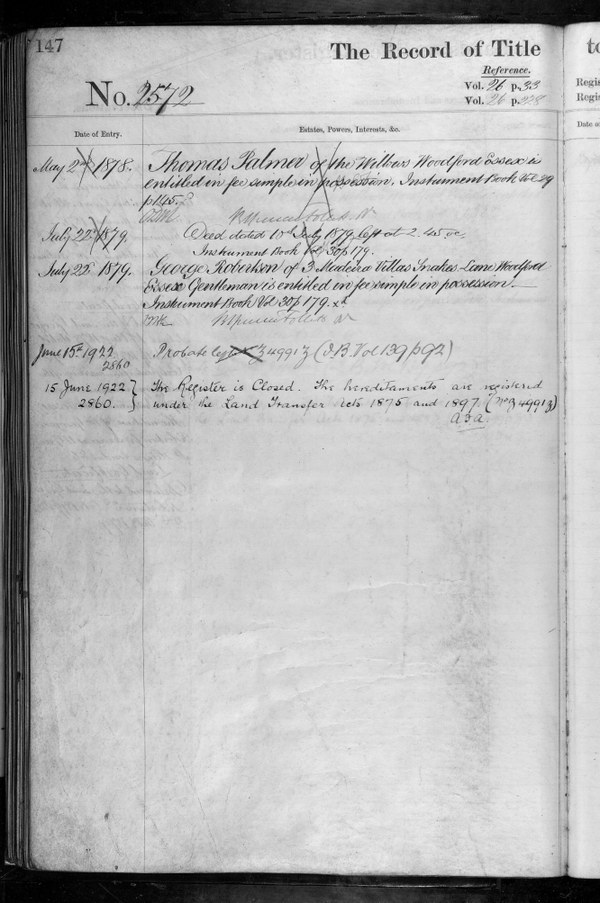 147
The Record of Title
Reference.
No. 2572
Vol. 26 p. 33
Vol. 26 p.
Date of Entry.
Estates, Powers, Interests, &c.
May 2nd 1878. Thomas Palmer of the Wilbars Woodford Essex is
entitled in fee simple in possession. Instrument Book Vol 29
p 145.
July 22nd 1879. Deed dated July 1879 left at 2.45 oc
Instrument Book Vol 30 p 179.
July 22nd 1879. George Robertson of 3 Madeira Villas Snakes Lane Woodford
Essex Gentleman is entitled in fee simple in possession.
Instrument Book Vol 30 p 179.
June 15th 1922 Probate Z 4991 Z (I.B. Vol 139 p 92)
2860
15 June 1922 The Register is Closed. The hereditaments are registered
2860. under the Land Transfer Acts 1875 and 1897 (No Z 4991 Z)
to
Regis
Regis
Date of